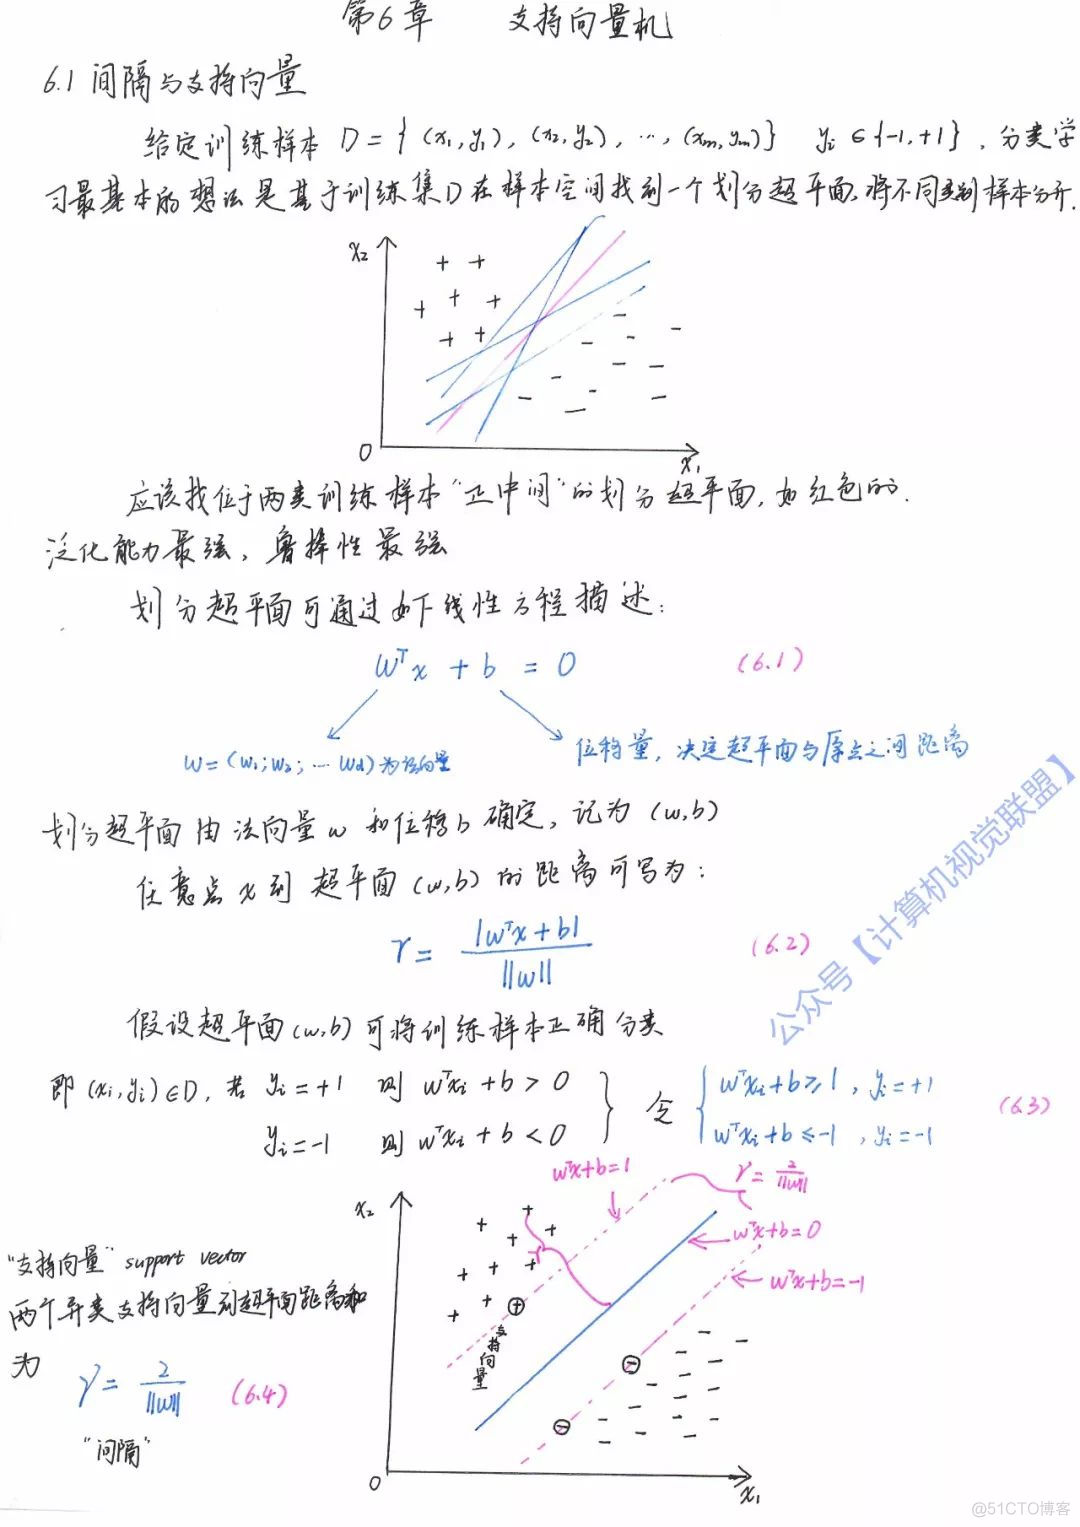 第6章 支持向量机
6.1 间隔与支持向量
给定训练样本 D = {(x₁,y₁), (x₂,y₂), ···, (xₘ,yₘ)} yᵢ ∈ {-1,+1}, 分类学
习最基本的想法是基于训练集D在样本空间找到一个划分超平面, 将不同类别样本分开.
x₂
+ +
+ + +
+ +
O
x₁
应该找位于两类训练样本“正中间”的划分超平面, 如红色的.
泛化能力最强, 鲁棒性最强
划分超平面可通过如下线性方程描述:
wᵀx + b = 0 (6.1)
w=(w₁;w₂;···wd)为法向量
位移量, 决定超平面与原点之间距离
划分超平面由法向量w和位移b确定, 记为 (w,b)
任意点x到超平面(w,b)的距离可写为:
r = |wᵀx+b| / ||w|| (6.2)
假设超平面(w,b)可将训练样本正确分类
即 (xᵢ,yᵢ)∈D, 若 yᵢ=+1 则 wᵀxᵢ+b > 0 } 令 { wᵀxᵢ+b ≥ 1, yᵢ=+1 (6.3)
yᵢ=-1 则 wᵀxᵢ+b < 0 wᵀxᵢ+b ≤ -1, yᵢ=-1
wᵀx+b=1
γ = 2/||w||
x₂
wᵀx+b=0
wᵀx+b=-1
r
支持向量
“支持向量” support vector
两个异类支持向量到超平面距离和
为
γ = 2/||w|| (6.4)
“间隔”
O
x₁
公众号【计算机视觉联盟】
@51CTO博客